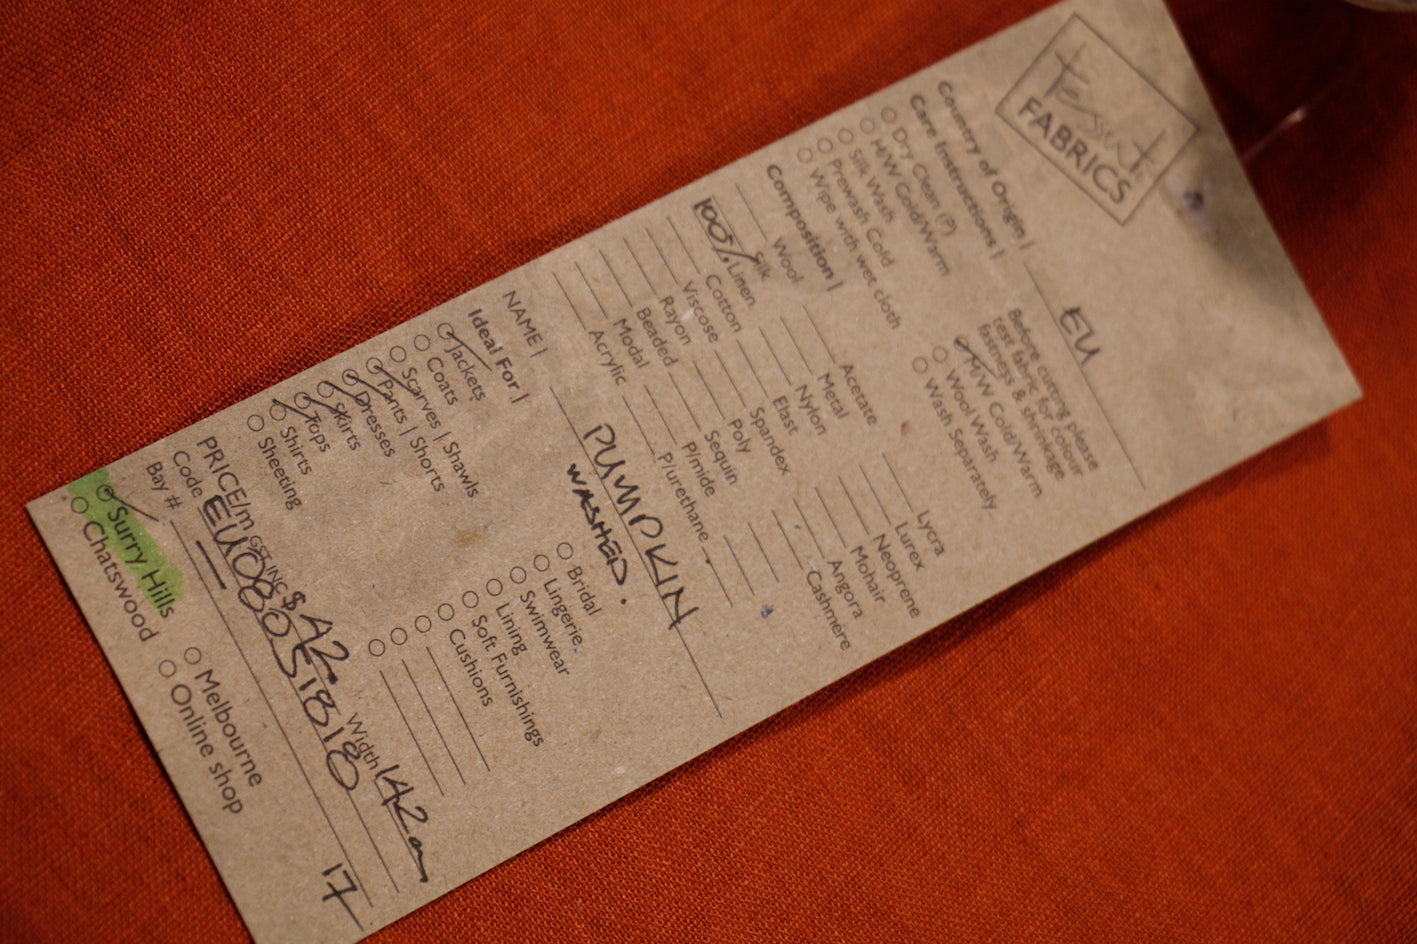 tessuti
FABRICS
Country of Origin | EU
Care Instructions |
Dry Clean (P)
H/W Cold/Warm
Silk Wash
Prewash Cold
Wipe with wet cloth
Before cutting please
test fabric for colour
fastness & shrinkage
H/W Cold/Warm
Wool Wash
Wash Separately
Composition |
Wool
Silk
100% Linen
Cotton
Viscose
Rayon
Beaded
Modal
Acrylic
Acetate
Metal
Nylon
Elast
Spandex
Poly
Sequin
P/mide
P/urethane
Lycra
Lurex
Neoprene
Mohair
Angora
Cashmere
NAME | PUMPKIN
WASHED.
Ideal For |
Jackets
Coats
Scarves | Shawls
Pants | Shorts
Dresses
Skirts
Tops
Shirts
Sheeting
Bridal
Lingerie
Swimwear
Lining
Soft Furnishings
Cushions
PRICE/m GST INC $ 42 Width 142cm
Code EU08051818
Bay # 17
Surry Hills
Chatswood
Melbourne
Online shop